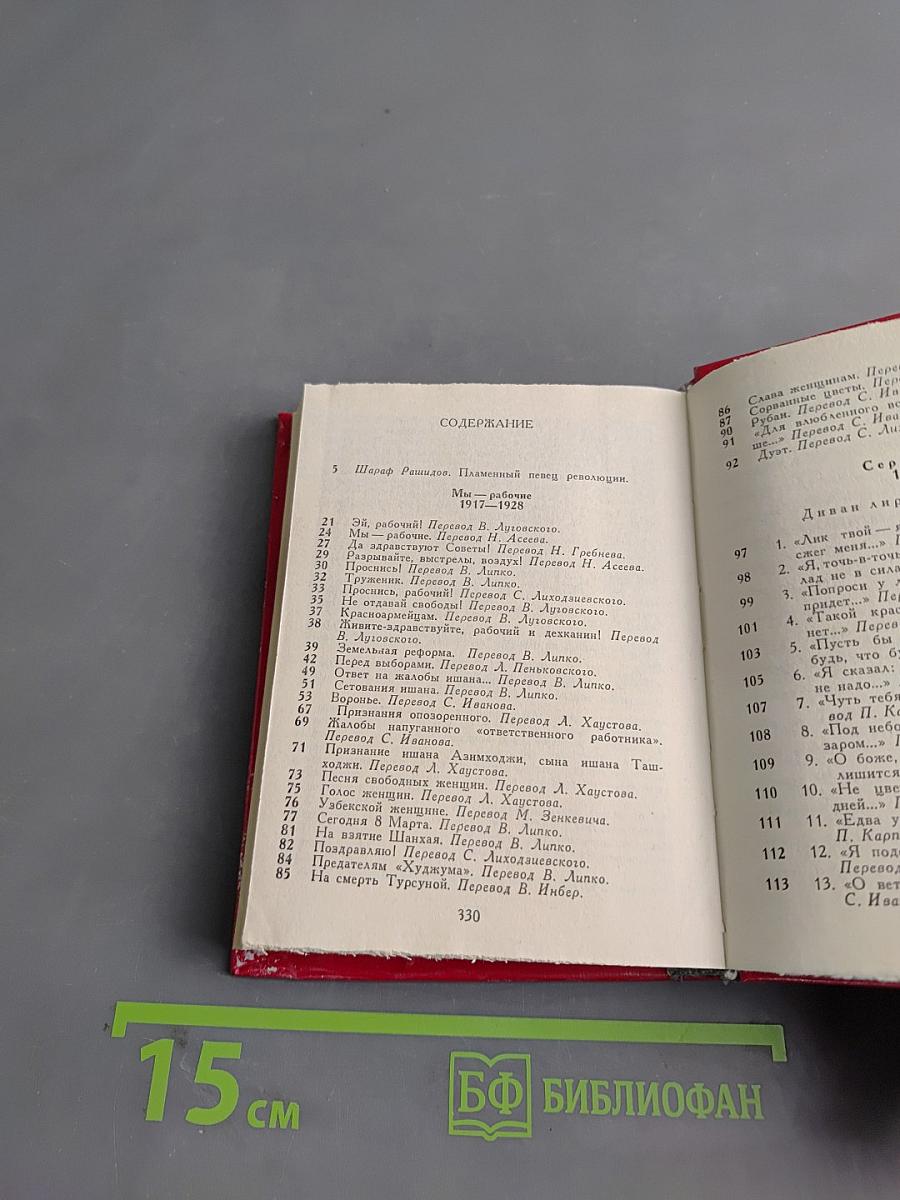 СОДЕРЖАНИЕ
5 Шараф Рашидов. Пламенный певец революции.
Мы — рабочие
1917—1928
21 Эй, рабочий! Перевод В. Луговского.
24 Мы — рабочие. Перевод Н. Асеева.
27 Да здравствуют Советы! Перевод Н. Гребнева.
29 Разрывайте, выстрелы, воздух! Перевод Н. Асеева.
30 Проснись! Перевод В. Липко.
32 Труженик. Перевод В. Липко.
33 Проснись, рабочий! Перевод С. Лиходзиевского.
35 Не отдавай свободы! Перевод В. Луговского.
37 Красноармейцам. Перевод В. Луговского.
38 Живите-здравствуйте, рабочий и дехканин! Перевод
В. Луговского.
39 Земельная реформа. Перевод В. Липко.
42 Перед выборами. Перевод Л. Пеньковского.
49 Ответ на жалобы ишана... Перевод В. Липко.
51 Сетования ишана. Перевод В. Липко.
53 Воронье. Перевод С. Иванова.
67 Признания опозоренного. Перевод Л. Хаустова.
69 Жалобы напуганного «ответственного работника».
Перевод С. Иванова.
71 Признание ишана Азимходжи, сына ишана Таш-
ходжи. Перевод Л. Хаустова.
73 Песня свободных женщин. Перевод Л. Хаустова.
75 Голос женщин. Перевод Л. Хаустова.
76 Узбекской женщине. Перевод М. Зенкевича.
77 Сегодня 8 Марта. Перевод В. Липко.
81 На взятие Шанхая. Перевод В. Липко.
82 Поздравляю! Перевод С. Лиходзиевского.
84 Предателям «Худжума». Перевод В. Липко.
85 На смерть Турсуной. Перевод В. Инбер.
330
86 Слава женщинам. Перев
87 Сорванные цветы. Пер
90 Рубаи. Перевод С. Ив
91 «Для влюбленного вс
ше...» Перевод С. Ива
92 Дуэт. Перевод С. Ли
Сер
1
Диван лир
97 1. «Лик твой — я
сжег меня...» П
98 2. «Я, точь-в-точь
лад не в сила
99 3. «Попроси у л
придет...» Пер
101 4. «Такой крас
нет...» Перев
103 5. «Пусть бы
будь, что б
105 6. «Я сказал:
не надо...»
107 7. «Чуть тебя
вод П. Ка
108 8. «Под небо
заром...» П
109 9. «О боже,
лишится
110 10. «Не цве
дней...» П
111 11. «Едва у
П. Карп
112 12. «Я под
Перевод
113 13. «О вет
С. Ива
15 см
БФ БИБЛИОФАН